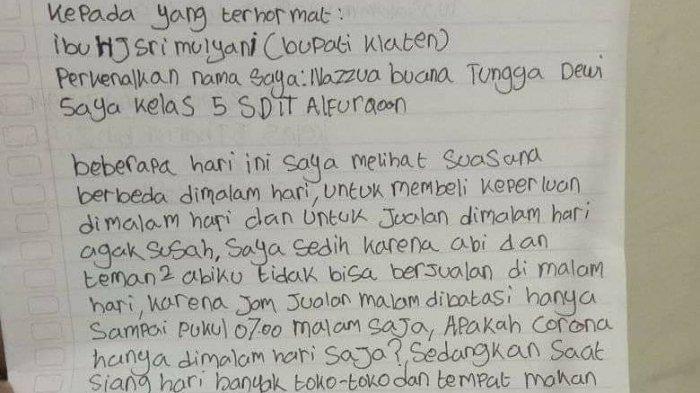 Kepada yang terhormat:
ibu HJ Sri mulyani (bupati klaten)
Perkenalkan nama saya: Nazzua buana Tungga Dewi
Saya kelas 5 SDIT Alfurqoon
beberapa hari ini saya melihat suasana
berbeda dimalam hari, untuk membeli keperluan
dimalam hari dan untuk Jualan dimalam hari
agak susah, saya sedih karena abi dan
teman2 abiku tidak bisa berjualan di malam
hari, karena Jam Jualan malam dibatasi hanya
Sampai pukul 07.00 malam saja, Apakah Corona
hanya dimalam hari saja?, Sedangkan Saat
siang hari banyak toko-toko dan tempat makan